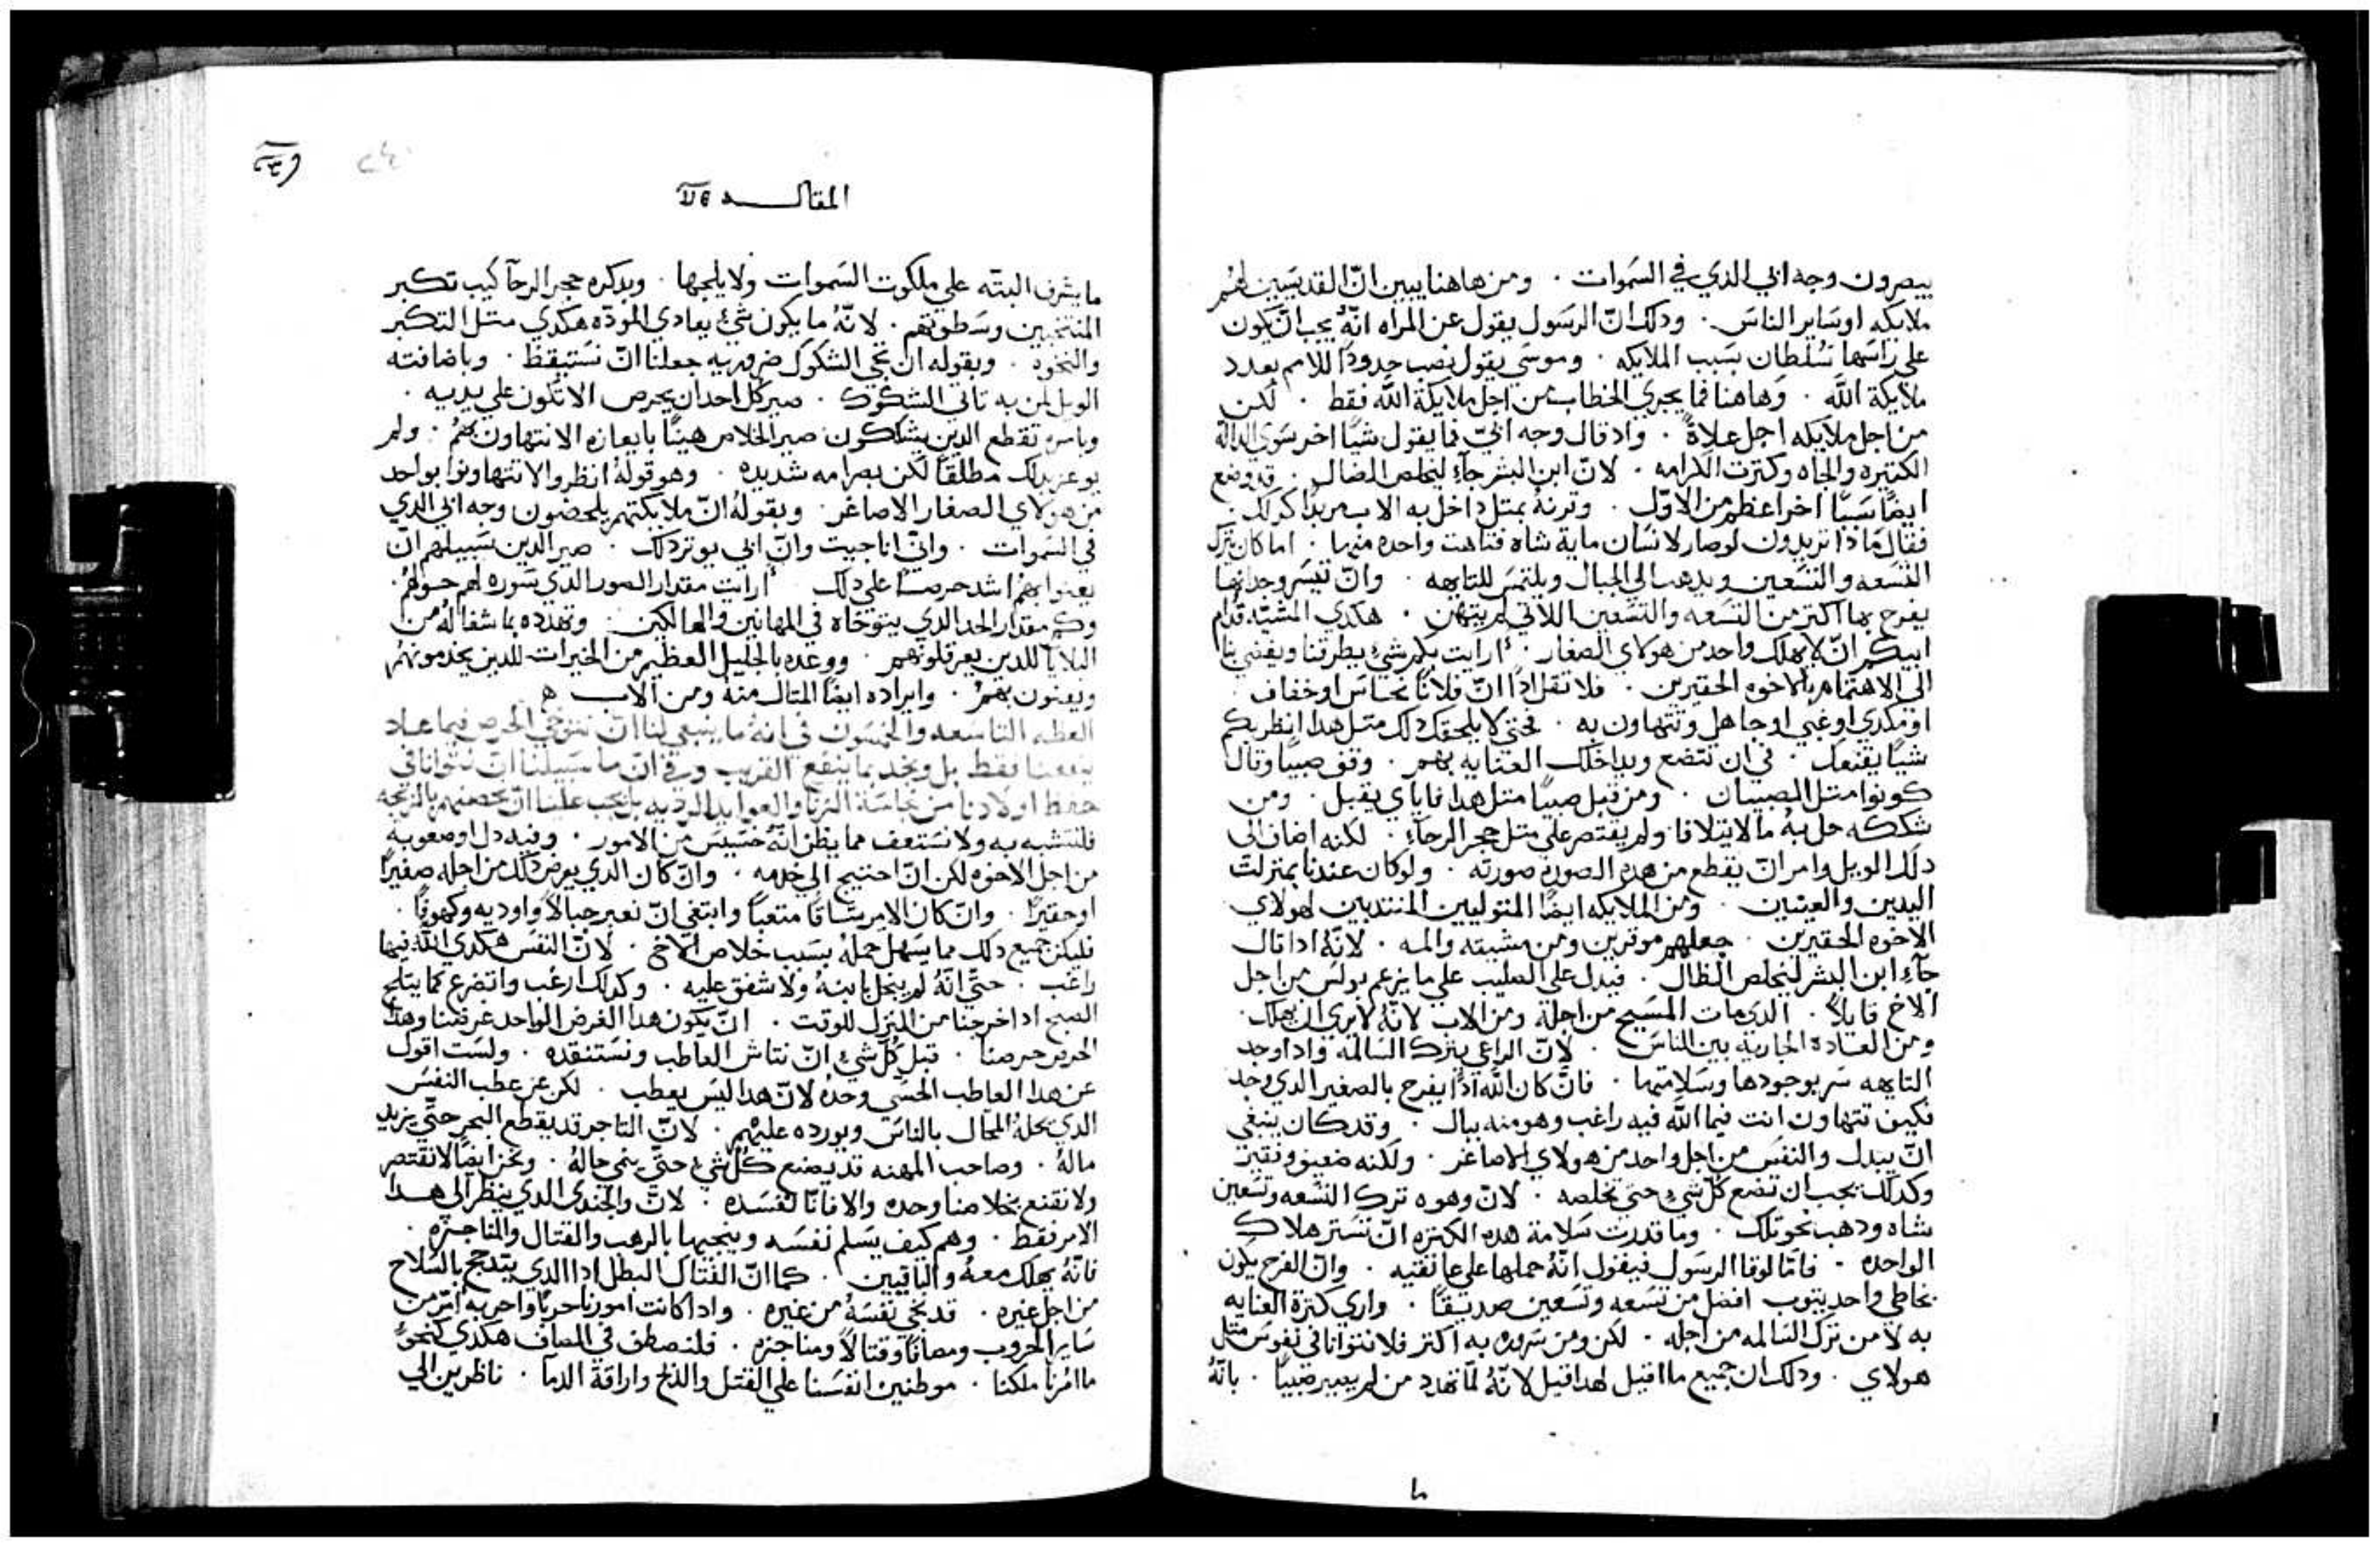 يبصرون وجه ابي الدي في السموات . ومن هاهنا يبين ان القديسين لهم
ملايكه او ساير الناس . ودلك ان الرسول يقول عن المراه انه يجب ان يكون
على راسها سلطان بسبب الملايكه . وموسي يقول نصب حدودًا للامم بعدد
ملايكة الله . وهاهنا فما يجري الخطاب من اجل ملايكة الله فقط . لكن
من اجل ملايكه اجل علاةً . واد قال وجه ابي فما يقول شيًا اخر سوي الداله
الكتيره والجاه وكترت الكرامه . لان ابن البشر جآء ليخلص الضال . قد وضع
ايضًا سببًا اخر اعظم من الاول . وقرنهُ بمتل داخل به الاب مريدًا كدلك .
فقال ما دا تريدون لو صار لانسان ماية شاه فتاهت واحده منها . اما كان يترك
التسعه والتسعين ويدهب الي الجبال ويلتمس للتايهه . وان تيسر وجدانها
يفرح بها اكتر من التسعه والتسعين اللاتي لم يتهن . هكدي المشيّه قدام
ابيكم ان لا يهلك واحد من هولاي الصغار . ارايت بكم شيء يطرقنا ويفضي بنا
الى الاهتمام بالاخوه الحقيرين . فلا تقل ادًا ان فلانًا نحاس او خفاف
او مكدي او غبي او جاهل وتتهاون به . فحتي لا يلحقك دلك متل هدا انظر بكم
شيًا يقنعك . في ان تتضع ويداخلك العنايه بهم . وقف صبيًا وقال
كونوا متل الصبيان . ومن قبل صبيًا متل هدا فاياي يقبل . ومن
شككه حل به ما لا يتلافا ولم يقتصر علي متل حجر الرحآء . لكنه اضاف الى
دلك الويل وامر ان يقطع من هده الصوره صورته . ولو كان عندنا بمنزلت
اليدين والعينين . ومن الملايكه ايضًا المتوليين المنتدبين لهولاي
الاخوه الحقيرين . جعلهم موقرين ومن مشيته والمه . لانّهُ ادا قال
جآء ابن البشر ليخلص الظال . فيدل على الصليب علي ما يزعم بولس من اجل
الاخ قايلاً . الدي مات المسيح من اجله ومن الاب لانّهُ لا يري ان يهلك .
ومن العاده الجاريه بين الناس . لان الراعي يترك السالمه وادا وجد
التايهه سر بوجودها وسلامتها . فان كان الله ادًا يفرح بالصغير الدي وجد
فكيف تتهاون انت فيما الله فيه راغب وهو منه ببال . وقد كان ينبغي
ان يبدل والنفس من اجل واحد من هولاي الاصاغر . ولكنه ضعيف وفقير
وكدلك يجب ان تضع كل شيء حتى تخلصه . لان وهوه ترك التسعه وتسعين
شاه ودهب نحو تلك . وما قدرت سلامة هده الكتره ان تستر هلاك
الواحده . فاما لوقا الرسول فيقول انّهُ حملها علي عاتقيه . وان الفرح يكون
بخاطي واحد يتوب افضل من تسعه وتسعين صديقًا . واري كترة العنايه
به لا من ترك السالمه من اجله . لكن ومن سروره به اكتر فلا نتوانا في نفوس متل
هولاي . ودلك ان جميع ما اقيل لهدا قيل لانّهُ لمّا تهدد من لم يصير صبيًا . بانّهُ
المقالـــه
ما يشرف البتّه علي ملكوت السموات ولا يلجها . وبدكره حجر الرحا كيب تكبر
المنتخبين وسطوتهم . لانّهُ ما يكون شيء يعادي المودّه هكدي متل التكبر
والنخوه . وبقوله ان تجي الشكوك ضروريه جعلنا ان نستيقظ . وباضافته
الويل لمن به تاتي الشكوك . صير كل احد ان يحرص الا تكون علي يديه .
وبامره تقطع الدين يشككون صير الخلاص هينًا بايعازه الا نتهاون بهم . ولم
يوعز بدلك مطلقًا لكن بصرامه شديده . وهو قوله انظروا لا تتهاونوا بواحد
من هولاي الصغار الاصاغر . وبقوله ان ملايكتهم يلحضون وجه ابي الدي
في السموات . واني انا جييت وان ابي يوتر دلك . صير الدين سبيلهم ان
يعنوا بهم اشد حرصًا علي دلك . ارايت مقدار السور الدي سوره لهم حولهم .
وكم مقدار الجد الدي يتوخاه في المهانين والهالكين . وتهدده بما شفا له من
البلايا للدين يعرقلونهم . ووعده بالجليل العظيم من الخيرات للدين يخدمونهم
ويعنون بهم . وايراده ايضًا المتال منهُ ومن الاب
العظه التاسعه والخمسون في انهُ ما ينبغي لنا ان نتوخي الحرص فيما عاد
ينفعنا فقط بل ونجد بما ينفع القريب وفي ان ما سبيلنا ان نتوانا في
حفظ اولادنا من نجاسة الزنا والعوايد الرديه بل يجب علينا ان نحصنهم بالزيجه
فلنتشبه به ولا نستعف مما يظن انّهُ خسيس من الامور . وفيه دل او صعوبه
من اجل الاخوه لكن ان احتيج الي خدمه . وان كان الدي يعرض دلك من اجله صغيرًا
او حقيرًا . وان كان الامر شاقًا متعبًا وابتغي ان نعبر جبالاً واوديه وكهوفًا .
فليكن جميع دلك مما يسهل حمله بسبب خلاص الاخ . لان النفس هكدي الله فيها
راغب . حتّي انّهُ لم يبخل بابنهُ ولا شفق عليه . وكدلك ارغب واتضرع كما يتلج
الصبح ادا خرجنا من المنزل للوقت . ان يكون هدا الغرض الواحد غرضنا وهدا
الحريز حرصنا . قبل كل شيء ان نتاش العاطب ونستنقده . ولست اقول
عن هدا العاطب الحسي وحدهُ لان هدا ليس يعطب . لكن عن عطب النفس
الدي يحله المحال بالناس ويورده عليهم . لان التاجر قد يقطع البحر حتّي يزيد
ماله . وصاحب المهنه قد يصنع كُل شيء حتّي ينمي حالهُ . ونحن ايضًا لا نقتصر
ولا نقنع بخلاصنا وحده والا فانّا نفسده . لان والجندي الدي ينظر الي هدا
الامر فقط . وهم كيف يسلم نفسه وينجيها بالرهب والقتال والمناجزه .
فانّهُ يهلك معهُ والباقيين . كما ان الفتاك البطل ادا الدي يتدجج بالسلاح
من اجل غيره . قد نجي نفسهُ من غيره . وادا كانت امورنا حربًا واحربه امرّ من
ساير الحروب ومصافًا وقتالاً ومناجزه . فلنصطف في المصاف هكدي كنحو
ما امرنا ملكنا . موطنين انفسنا علي القتل والدبح واراقة الدما . ناظرين الي